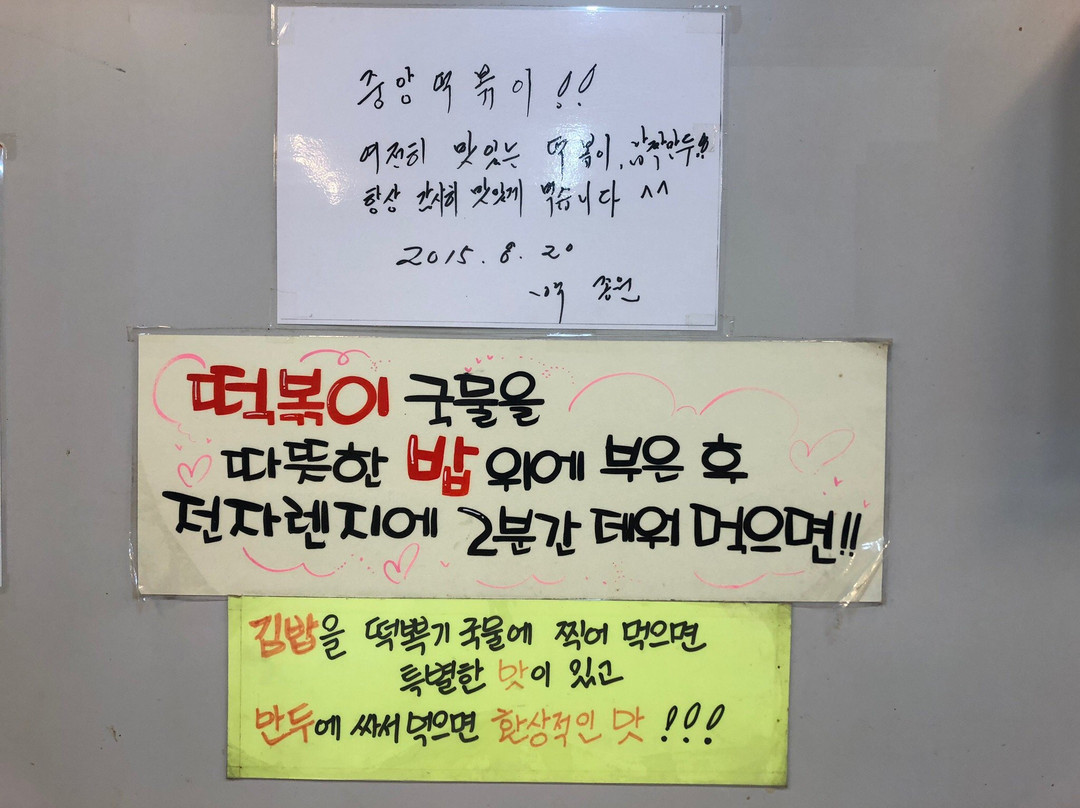 중앙떡볶이!!
여전히 맛있는 떡볶이, 납짝만두!!
항상 감사히 맛있게 먹습니다 ^^
2015. 8. 20
종원
떡볶이 국물을
따뜻한 밥 위에 부은 후
전자렌지에 2분간 데워 먹으면!!
김밥을 떡뽁기 국물에 찍어 먹으면
특별한 맛이 있고
만두에 싸서 먹으면 환상적인 맛!!!